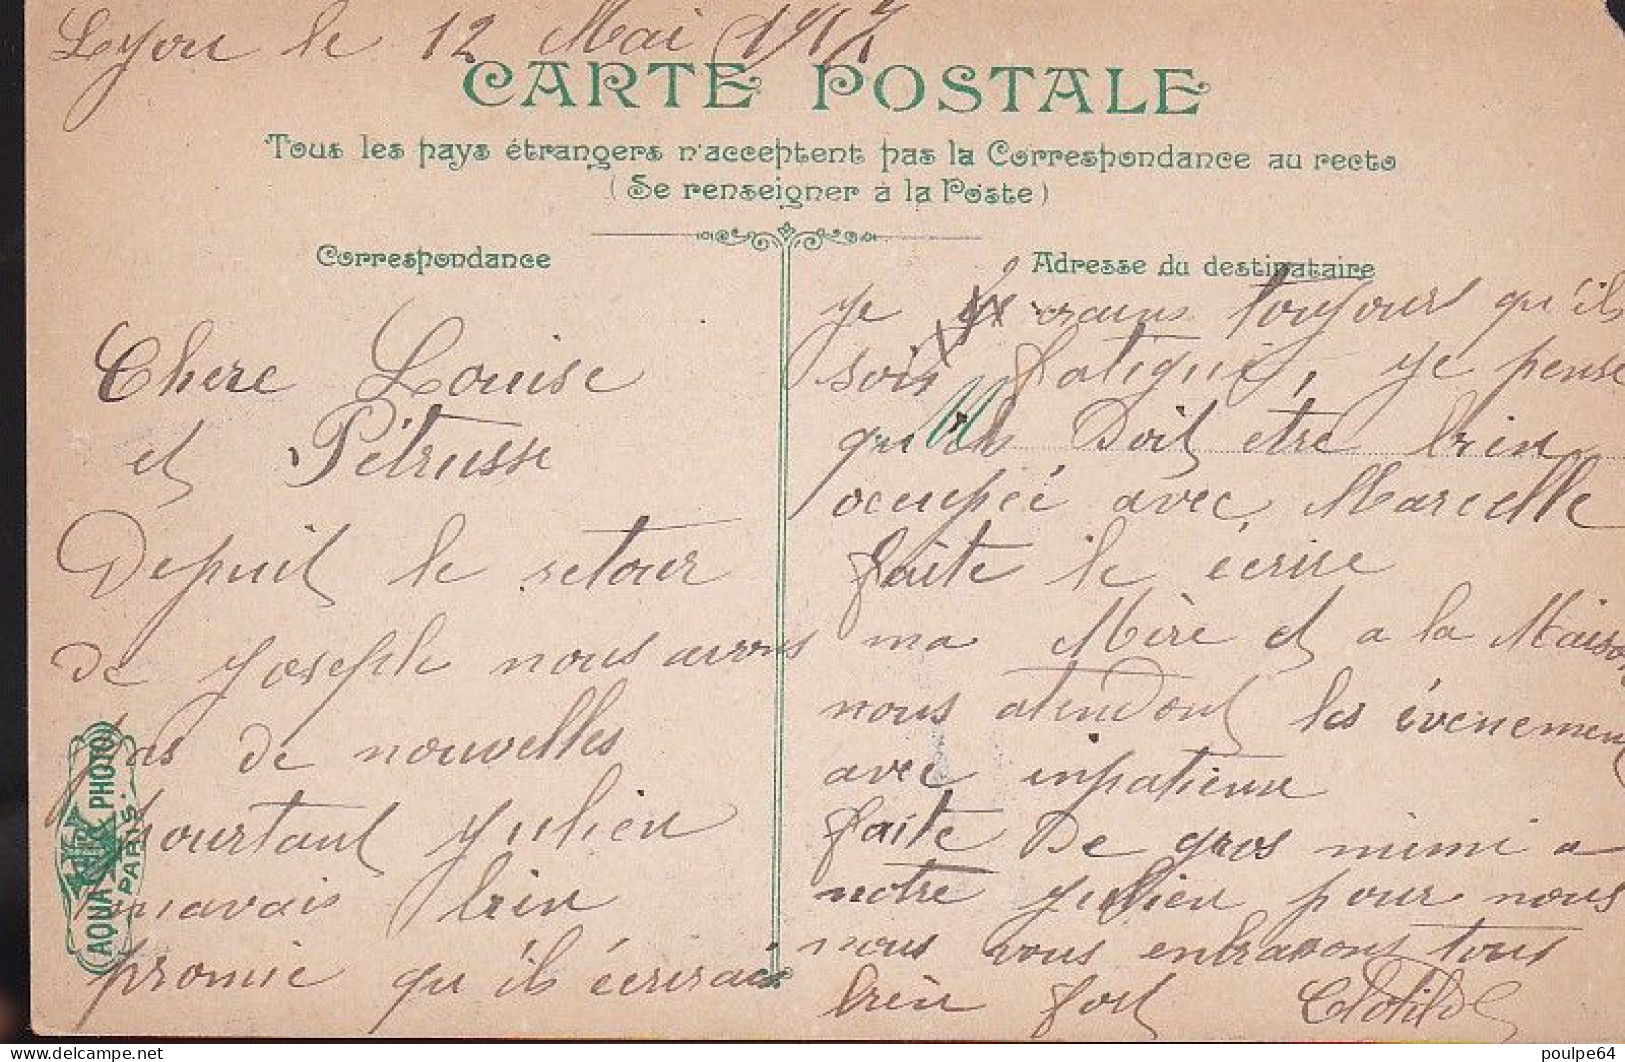 Lyon le 12 Mai 1917
CARTE POSTALE
Tous les pays étrangers n'acceptent pas la Correspondance au recto
(Se renseigner à la Poste)
Correspondance
Chere Louise
et Pétrusse
Depuit le retour
de Joseph nous avons
pas de nouvelles
pourtant Julien
mavais bien
promie qu'ils écrirais
Adresse du destinataire
je crains toujours qu'ils
sois fatigué, je pense
qu'ils doit etre bien
occupée avec Marcelle
faite le écrire
ma Mère et a la Maison
nous atendont les évenement
avec inpatience
faite de gros mimi a
notre Julien pour nous
nous vous enbrasons tous
bien fort Clotilde
AQUA PHOTO
PARIS
delcampe.net
poulpe64